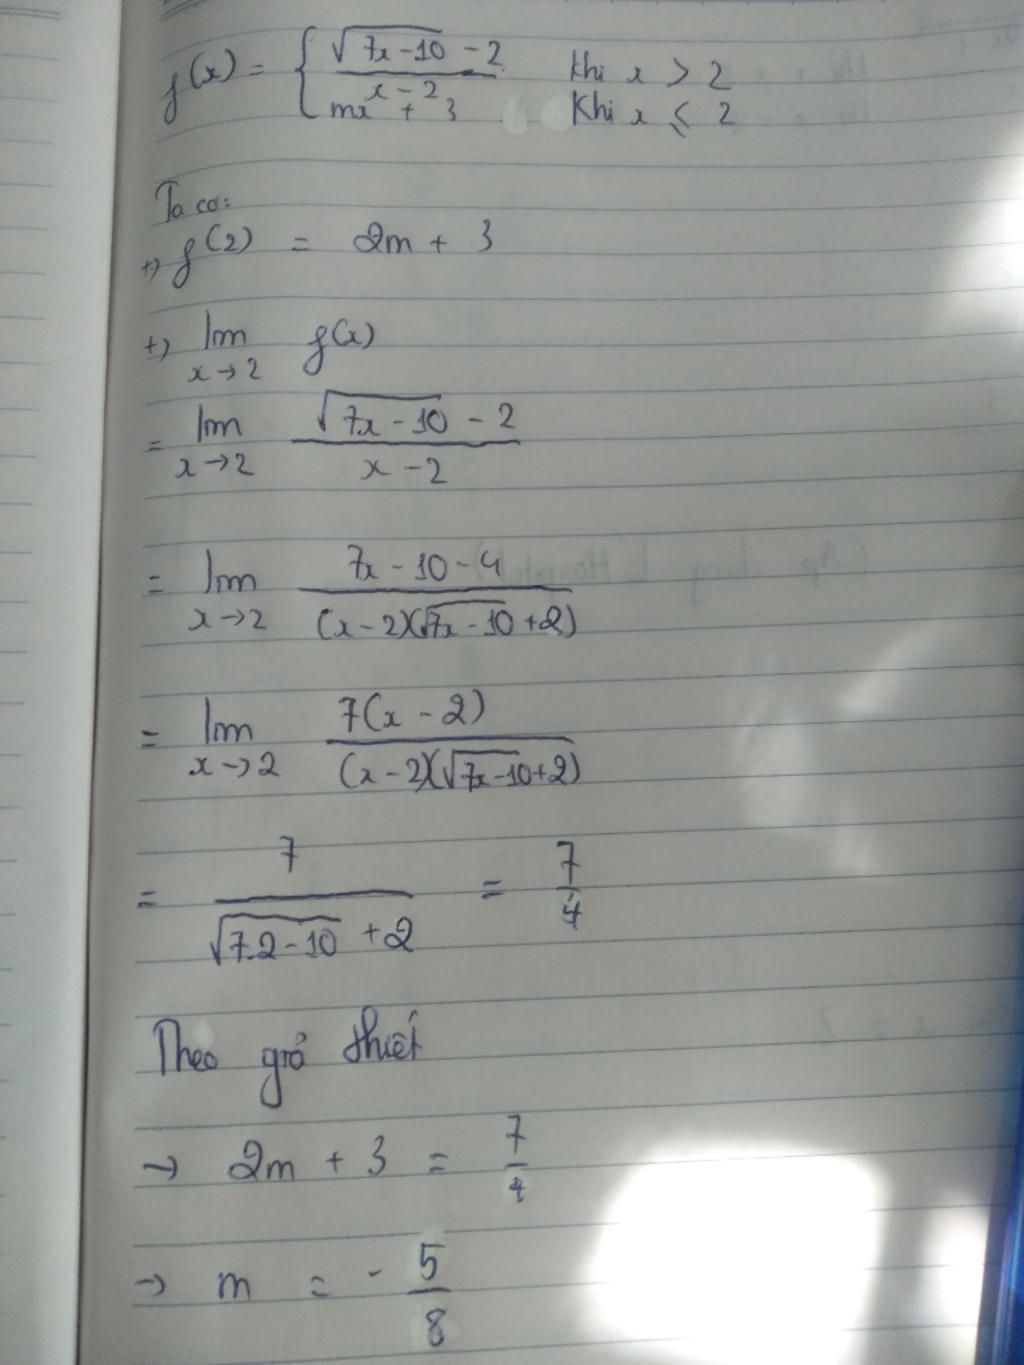 f(x) = { (√(7x-10) - 2)/(x - 2) khi x > 2
mx + 3 Khi x ≤ 2
Ta có:
+) f(2) = 2m + 3
+) lim x→2 f(x)
= lim x→2 (√(7x-10) - 2)/(x - 2)
= lim x→2 (7x - 10 - 4)/((x-2)(√(7x-10) + 2))
= lim x→2 7(x - 2)/((x-2)(√(7x-10) + 2))
= 7/(√(7.2-10) + 2) = 7/4
Theo giả thiết
→ 2m + 3 = 7/4
→ m = - 5/8